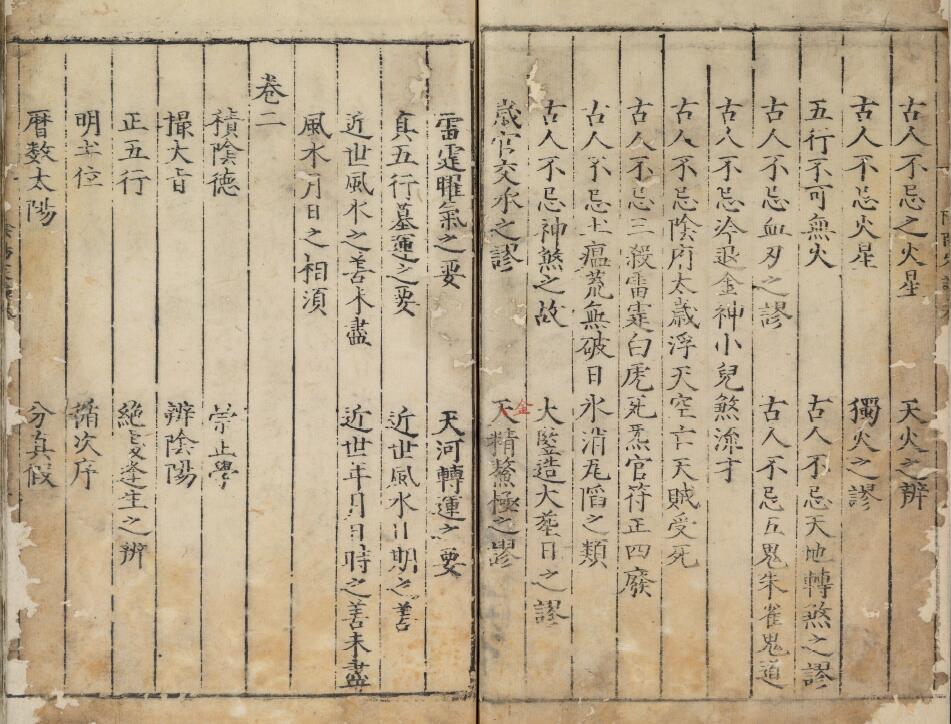 古人不忌之火星 天火之辨
古人不忌火星 獨火之謬
五行不可無火 古人不忌天地轉煞之謬
古人不忌血刃之謬 古人不忌五鬼朱雀鬼道
古人不忌冷退金神小兒煞流才
古人不忌陰府太歲浮天空亡天賊受死
古人不忌三殺雷霆白虎死炁官符正四廢
古人不忌土瘟荒蕪破日氷消瓦陷之類
古人不忌神煞之故 大鑒造大葬日之謬
歲官交承之謬 天精鰲極之謬
金
雷霆曜氣之要 天河轉運之要
真五行墓運之要 近世風水日期之善
近世風水之善未盡 近世年月日時之善未盡
風水月日之相須
卷二
積陰德 崇正學
撮大旨 辨陰陽
正五行 絕處逢生之辨
明主位 循次序
曆數太陽 分真假